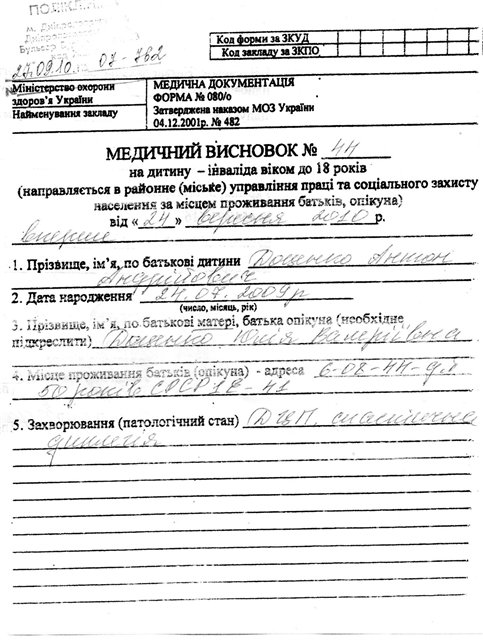 ПОЛІКЛІ
м. Дніпропетровськ
Бульвар
Код форми за ЗКУД
Код закладу за ЗКПО
27.09.10 07-762
№
Міністерство охорони
здоров'я України
Найменування закладу
МЕДИЧНА ДОКУМЕНТАЦІЯ
ФОРМА № 080/о
Затверджена наказом МОЗ України
04.12.2001р. № 482
МЕДИЧНИЙ ВИСНОВОК № 4Н
на дитину – інваліда віком до 18 років
(направляється в районне (міське) управління праці та соціального захисту
населення за місцем проживання батьків, опікуна)
від « 24 » вересня 2010 р.
вперше
1. Прізвище, ім'я, по батькові дитини Доценко Антон
Андрійович
2. Дата народження 24.07.2009р
(число, місяць, рік)
3. Прізвище, ім'я, по батькові матері, батька опікуна (необхідне
підкреслити) Доценко Юлія Валеріївна
4. Місце проживання батьків (опікуна) - адреса
50 років СРСР
5. Захворювання (патологічний стан) ДЦП, спастична
диплегія